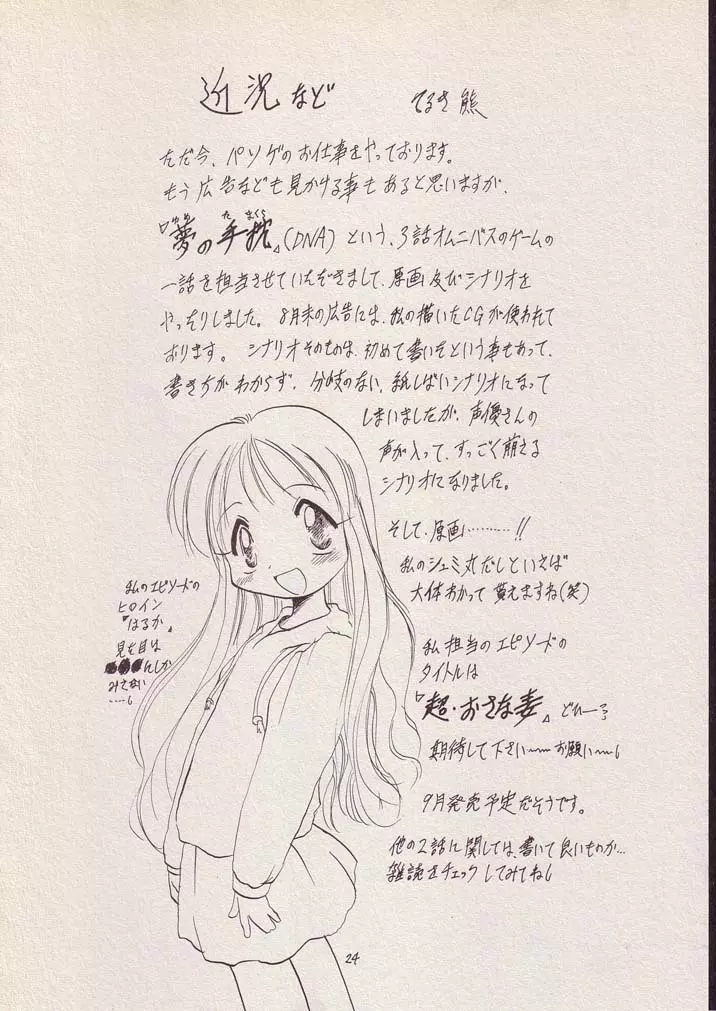 近況など てるき熊
ただ今、パソゲのお仕事をやっております。
もう広告なども見かける事もあると思いますが、
『夢の手枕』(DNA)という、3話オムニバスのゲームの
ゆめ た まくら
一話を担当させていただきまして、原画及びシナリオを
やったりしました。8月末の広告には、私の描いたCGが使われて
おります。シナリオそのものは、初めて書いたという事もあって、
書き方がわからず、分岐のない、紙しばいシナリオになって
しまいましたが、声優さんの
声が入って、すっごく萌える
シナリオになりました。
そして、原画………!!
私のシュミ丸だしといえば
大体わかって貰えますね(笑)
私のエピソードの
ヒロイン
『はるか』
見た目は
にしか
みえない
……。
私担当のエピソードの
タイトルは
『超・おさな妻』どひーっ
期待して下さい〜〜お願い〜。
9月発売予定だそうです。
他の2話に関しては、書いて良いものか…
雑誌をチェックしてみてね。
24